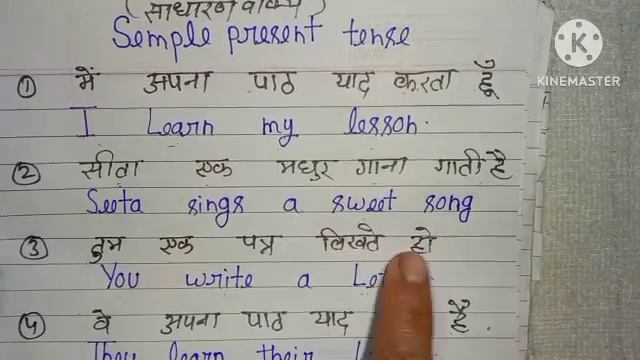 (साधारण वाक्य)
Semple present tense
KINEMASTER
① में अपना पाठ याद करता हूँ
I Learn my lesson.
② सीता एक मधुर गाना गाती है
Seeta sings a sweet song
③ तुम एक पत्र लिखते हो
You write a
④ वे अपना पाठ याद है.
They learn their